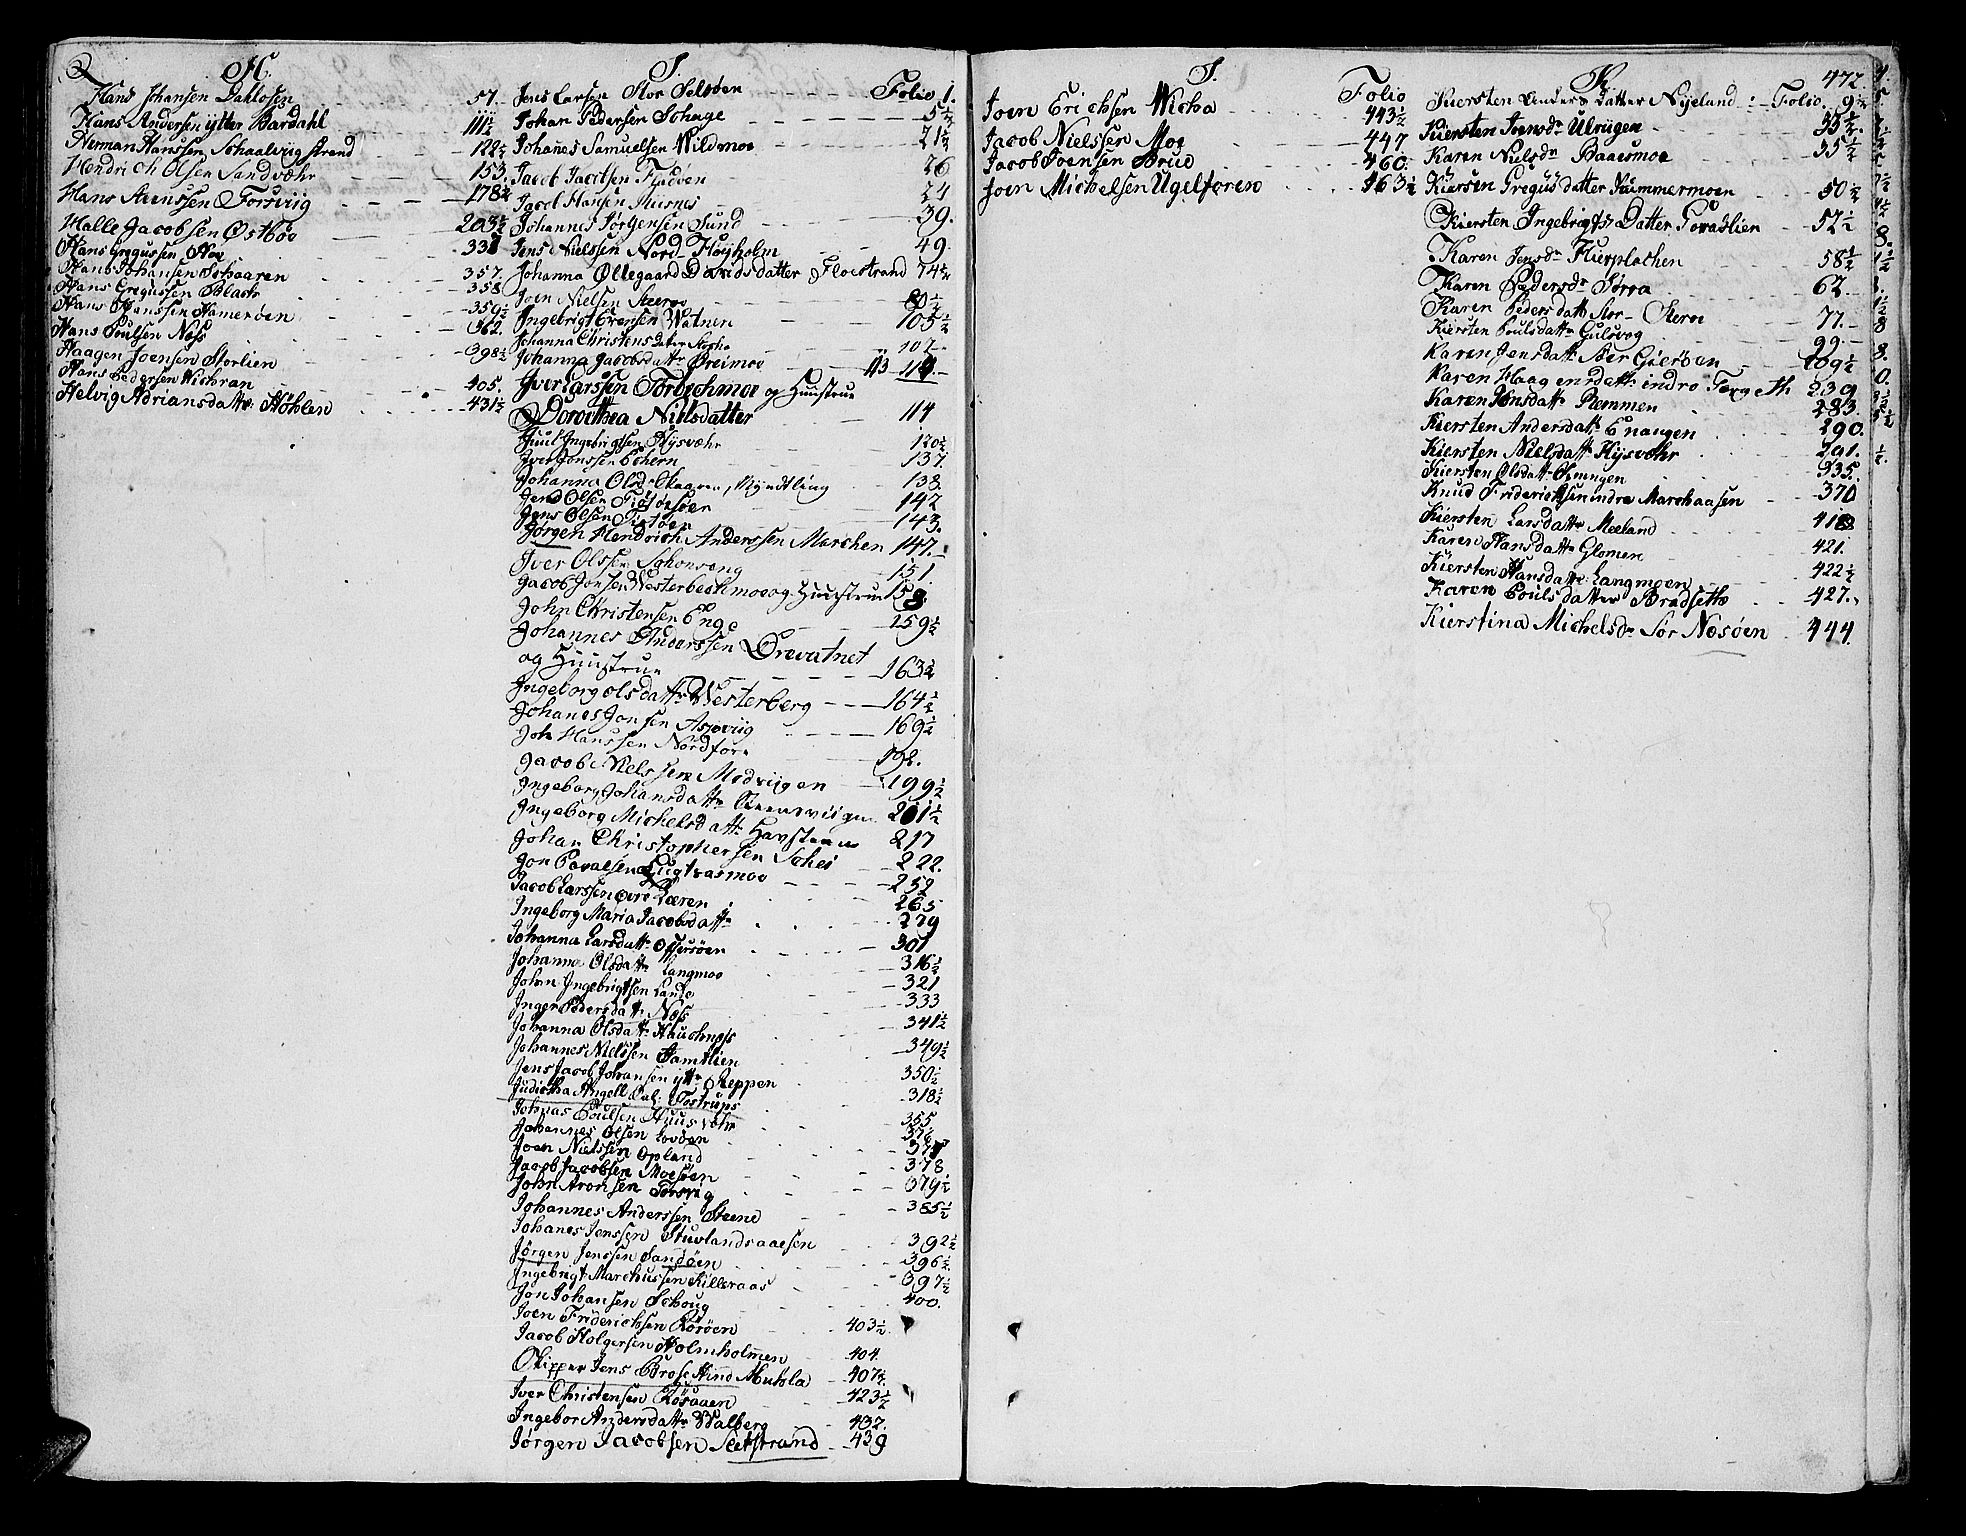 H.
Hans Johansen Dahlosen 57.
Hans Andersen ytter Bardahl 111½
Herman Hanssen Schaalvig strand 122½
Hendrich Olsen Sandvæhr 153.
Hans Steenssen Forsviig 178½
Halle Jacobsen Østbøe 203½
Hans Gregussen Moe 337
Hans Johansen Schaaren 357.
Hans Gregussen Blach 358
Hans Hanssen Hamerøen 359½
Hans Poulsen Næss 362.
Haagen Joensen Storlien 398½
Hans Pedersen Wichran 405.
Helvig Adriansdattr Høhlen 431½
J. Folio
Jens Larsen Stor Selsøen 1.
Johan Pedersen Schage 5½
Johanes Samuelsen Wildmoe 21½
Jacob Jacobsen Fludven 26
Jacob Hansen Musnes 24
Johannes Jørgensen Sund 39.
Jens Nielssen Nord Høyholm 49.
Johanna Øllegaard Davidsdatter Floestrand 74½
Joen Nielsen Steeroe 80½
Ingebrigt Evensen Watnen 105½
Johanna Christensdater 107
Johanna Jacobsdattr Breimoe 113
Iver Larssen Forbechmoe og Huustrue
Dorothea Nielsdatter 114
Juul Ingebrigtsen Flysvæhr 120½
Iver Jonssen Echern 137.
Johanna Olsdr Skaaren, Myndtling 138.
Jens Olsen Tiøtøesøen 142
Jens Olsen Tiøtøen 143.
Jørgen Hendrich Anderssen Marchen 147.
Iver Olssen Schonseng 151.
Jacob Jonsen Westerbechmoe og Huustrue 158.
John Christensen Enge 159½
Johannes Anderssen Drevatnet
og Huustrue 163½
Ingeborg Olsdattr Westerberg 164½
Johanes Jonsen Aspviig 169½
Joh Hanssen Nordfore 192.
Jacob Nielssen Modviigen 199½
Ingeborg Johansdattr 201½
Ingeborg Michelsdattr Havstenes 217
Johan Christophersen Schei 222.
Jon Povelsen Lugtvasmoe 252
Jacob Larssen øvre Leeren 265
Ingeborg Maria Jacobsdattr 279
Johanna Larsdattr Offersøen 301
Johanna Olsdattr Langmoe 316½
John Ingebrigtsen Lande 321
Inger Pedersdattr Næss 333
Johanna Olsdattr Hauchnæss 341½
Johannes Nielssen Famtlien 349½
Jens Jacob Johansen yttr Reppen 350½
Judictha Angell Sal. Tostrups 318½
Johnas Poulsen Huusvæhr 355
Johannes Olsen Lovden 376
Joen Nielssen Opland 377
Jacob Jacobsen Moesøen 378
John Aronsen Forsvig 379½
Johannes Anderssen Steene 385½
Johanes Jonssen Stuvlandsaaesen 392½
Jørgen Jenssen Sandøen 396½
Ingebrigt Marchussen Killeraas 397½
Jon Johansen Schoug 400.
Joen Friderichsen Røsøen 403½
Jacob Holgersen Holmholmen 404.
Skipper Jens Brose Hind Mutola 407½
Iver Christensen Røsaaen 423½
Ingebor Andersdattr Walberg 437.
Jørgen Jacobsen Seetstrand 439
J. Folio
Joen Erichsen Wicha 443½
Jacob Nielssen Moe 447
Jacob Joensen Brue 460.
Joen Michelsen Ugelforen 463½
K. 472.
Kiersten Andersdatter Nyeland Folio. 9½
Kiersten Joensdr Ulviigen 33½
Karen Nielsdr Baaesmoe 35½
Kiersten Gregusdatter Summermoen 50½
Kiersten Ingebrigts Datter Govaslien 52½
Karen Jensdr Kurplachen 58½
Karen Pedersdr Sørra 62
Karen Pedersdattr Stor Steren 77.
Kiersten Poulsdattr Gulsvog 99.
Karen Jensdattr Nær Giersøen 109½
Karen Haagensdattr indre Torgeth 239
Karen Hansdattr Remmen 283.
Kiersten Andersdattr Enangen 290.
Kiersten Nielsdattr Flysvæhr 291.
Kiersten Olsdattr Omnngen 335.
Knud Friderichsen indre Marchaasen 370
Kiersten Larsdattr Meeland 418
Karen Hansdattr Glomen 421.
Kiersten Hansdattr Langmoen 422½
Karen Poulsdatter Bradsetth 427.
Kierstina Michelsdr Sør Nesøen 444.